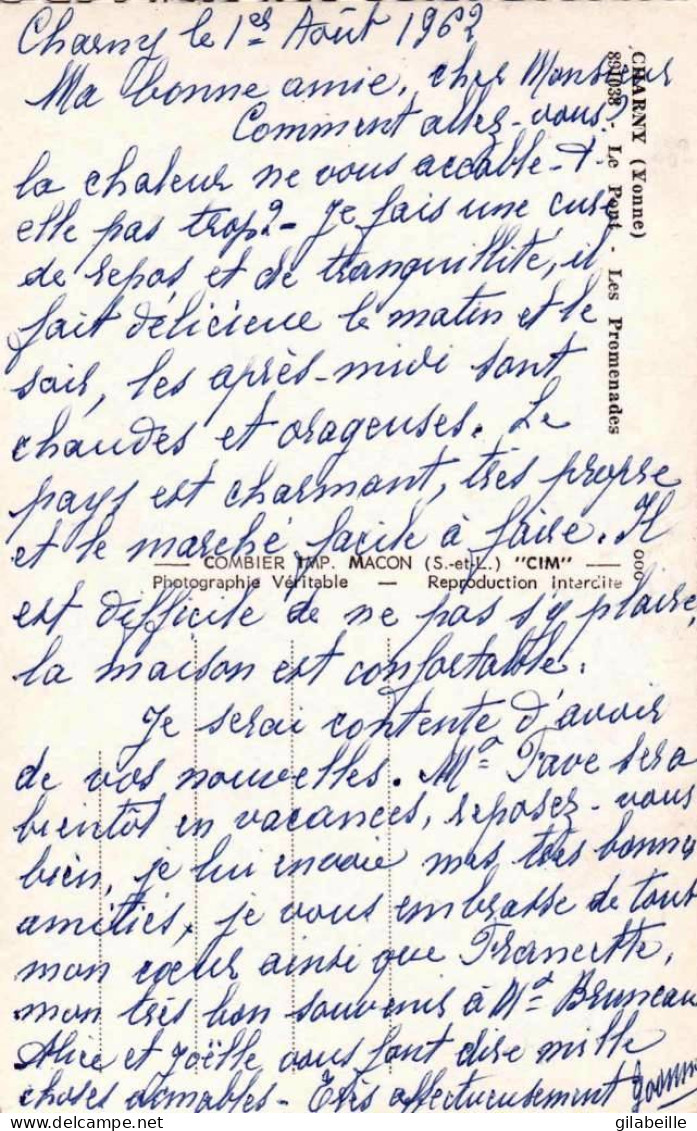 Charny le 1er Août 1962
Ma bonne amie, cher Monsieur
Comment allez-vous?
la chaleur ne vous accable-t-
elle pas trop?- Je fais une cure
de repos et de tranquillité, il
fait délicieux le matin et le
soir, les après-midi sont
chaudes et orageuses. Le
pays est charmant, très propre
et le marché facile à faire. Il
est difficile de ne pas s'y plaire,
la maison est confortable.
Je serai contente d'avoir
de vos nouvelles. Mr Fave sera
bientôt en vacances, reposez-vous
bien, je lui envoie mes très bonnes
amitiés, je vous embrasse de tout
mon cœur ainsi que Francette,
mon très bon souvenir à Md Bruneau
Alice et Joëlle vous font dire mille
choses aimables - Très affectueusement
CHARNY (Yonne)
891038 - Le Pont - Les Promenades
000
COMBIER IMP. MACON (S.-et-L.) "CIM"
Photographie Véritable — Reproduction interdite
gilabeille